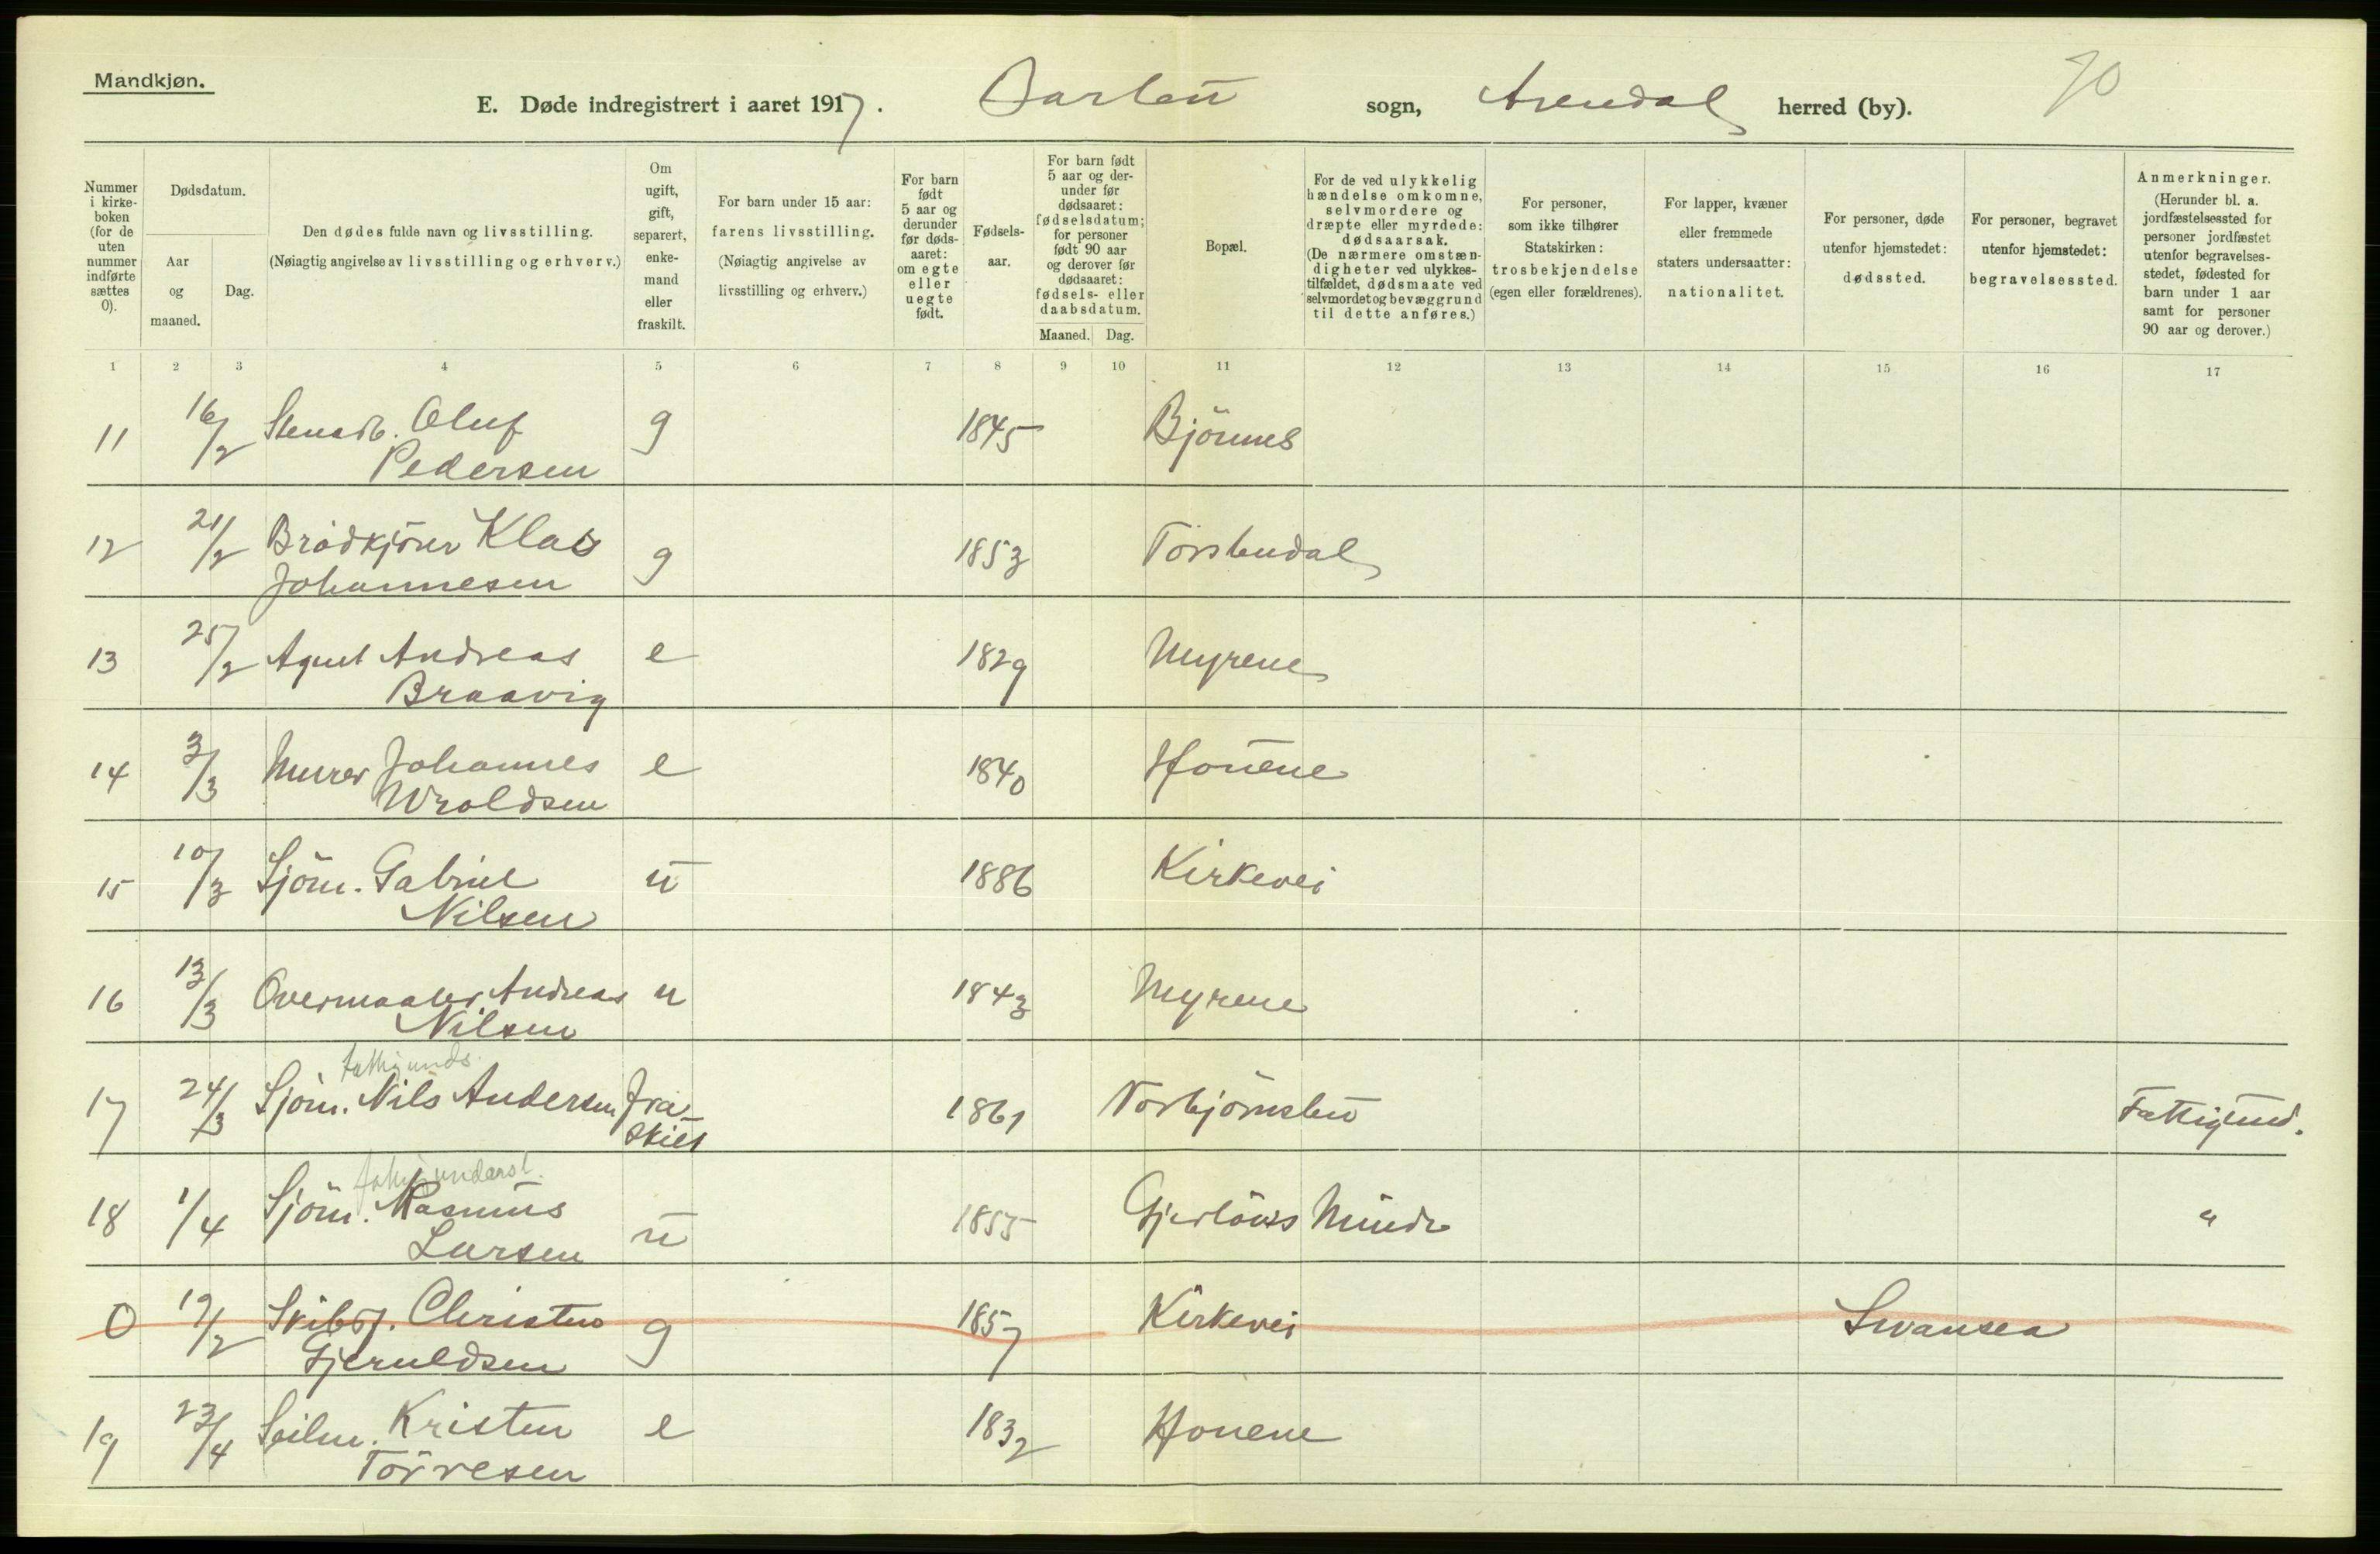 Mandkjøn.
E. Døde indregistrert i aaret 1917. sogn, Arendal herred (by). 70
Nummer i kirkeboken (for de uten nummer indførte sættes 0).
Dødsdatum.
Aar og maaned.
Dag.
Den dødes fulde navn og livsstilling.
(Nøiagtig angivelse av livsstilling og erhverv.)
Om ugift, gift, separert, enkemand eller fraskilt.
For barn under 15 aar: farens livsstilling.
(Nøiagtig angivelse av livsstilling og erhverv.)
For barn født 5 aar og derunder før dødsaaret: om egte eller uegte født.
Fødselsaar.
For barn født 5 aar og derunder før dødsaaret: fødselsdatum; for personer født 90 aar og derover før dødsaaret: fødsels- eller daabsdatum.
Maaned. Dag.
Bopæl.
For de ved ulykkelig hændelse omkomne, selvmordere og dræpte eller myrdede: dødsaarsak.
(De nærmere omstændigheter ved ulykkestilfældet, dødsmaate ved selvmordet og bevæggrund til dette anføres.)
For personer, som ikke tilhører Statskirken: trosbekjendelse (egen eller forældrenes).
For lapper, kvæner eller fremmede staters undersaatter: nationalitet.
For personer, døde utenfor hjemstedet: dødssted.
For personer, begravet utenfor hjemstedet: begravelsessted.
Anmerkninger.
(Herunder bl. a. jordfæstelsessted for personer jordfæstet utenfor begravelsesstedet, fødested for barn under 1 aar samt for personer 90 aar og derover.)
1 2 3 4 5 6 7 8 9 10 11 12 13 14 15 16 17
11 16/2 Oluf g 1845 Björnnes
Pedersen
12 21/2 Klas g 1853 Torstendal
Johannesen
13 25/2 Agent Andreas e 1829 Myrene
Braavig
14 3/3 Murer Johannes e 1840 Houene
Wroldsen
15 10/3 Sjöm. Gabriel u 1886 Kirkevei
Nilsen
16 13/3 Overmaaler Andreas u 1843 Myrene
Nilsen
fattigunds.
17 24/3 Sjöm. Nils Andersen fra- 1861 Torbjörnsbu Fattigund.
skilt
fattigunderst.
18 1/4 Sjöm. Rasmus u 1855 Gjerlöws Minde "
Larsen
0 19/2 Skibsf. Christen g 1857 Kirkevei Swansea
Gjeruldsen
19 23/4 Seilm. Kristen e 1832 Houene
Törresen